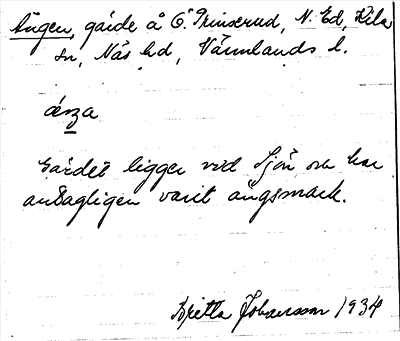 Ängen, gärde å Ö. Prinserud, N. Ed, Kila
sn, Näs hd, Värmlands l.
Gärdet ligger vid Sjön och har
antagligen varit ängsmark.
Johansson 1934